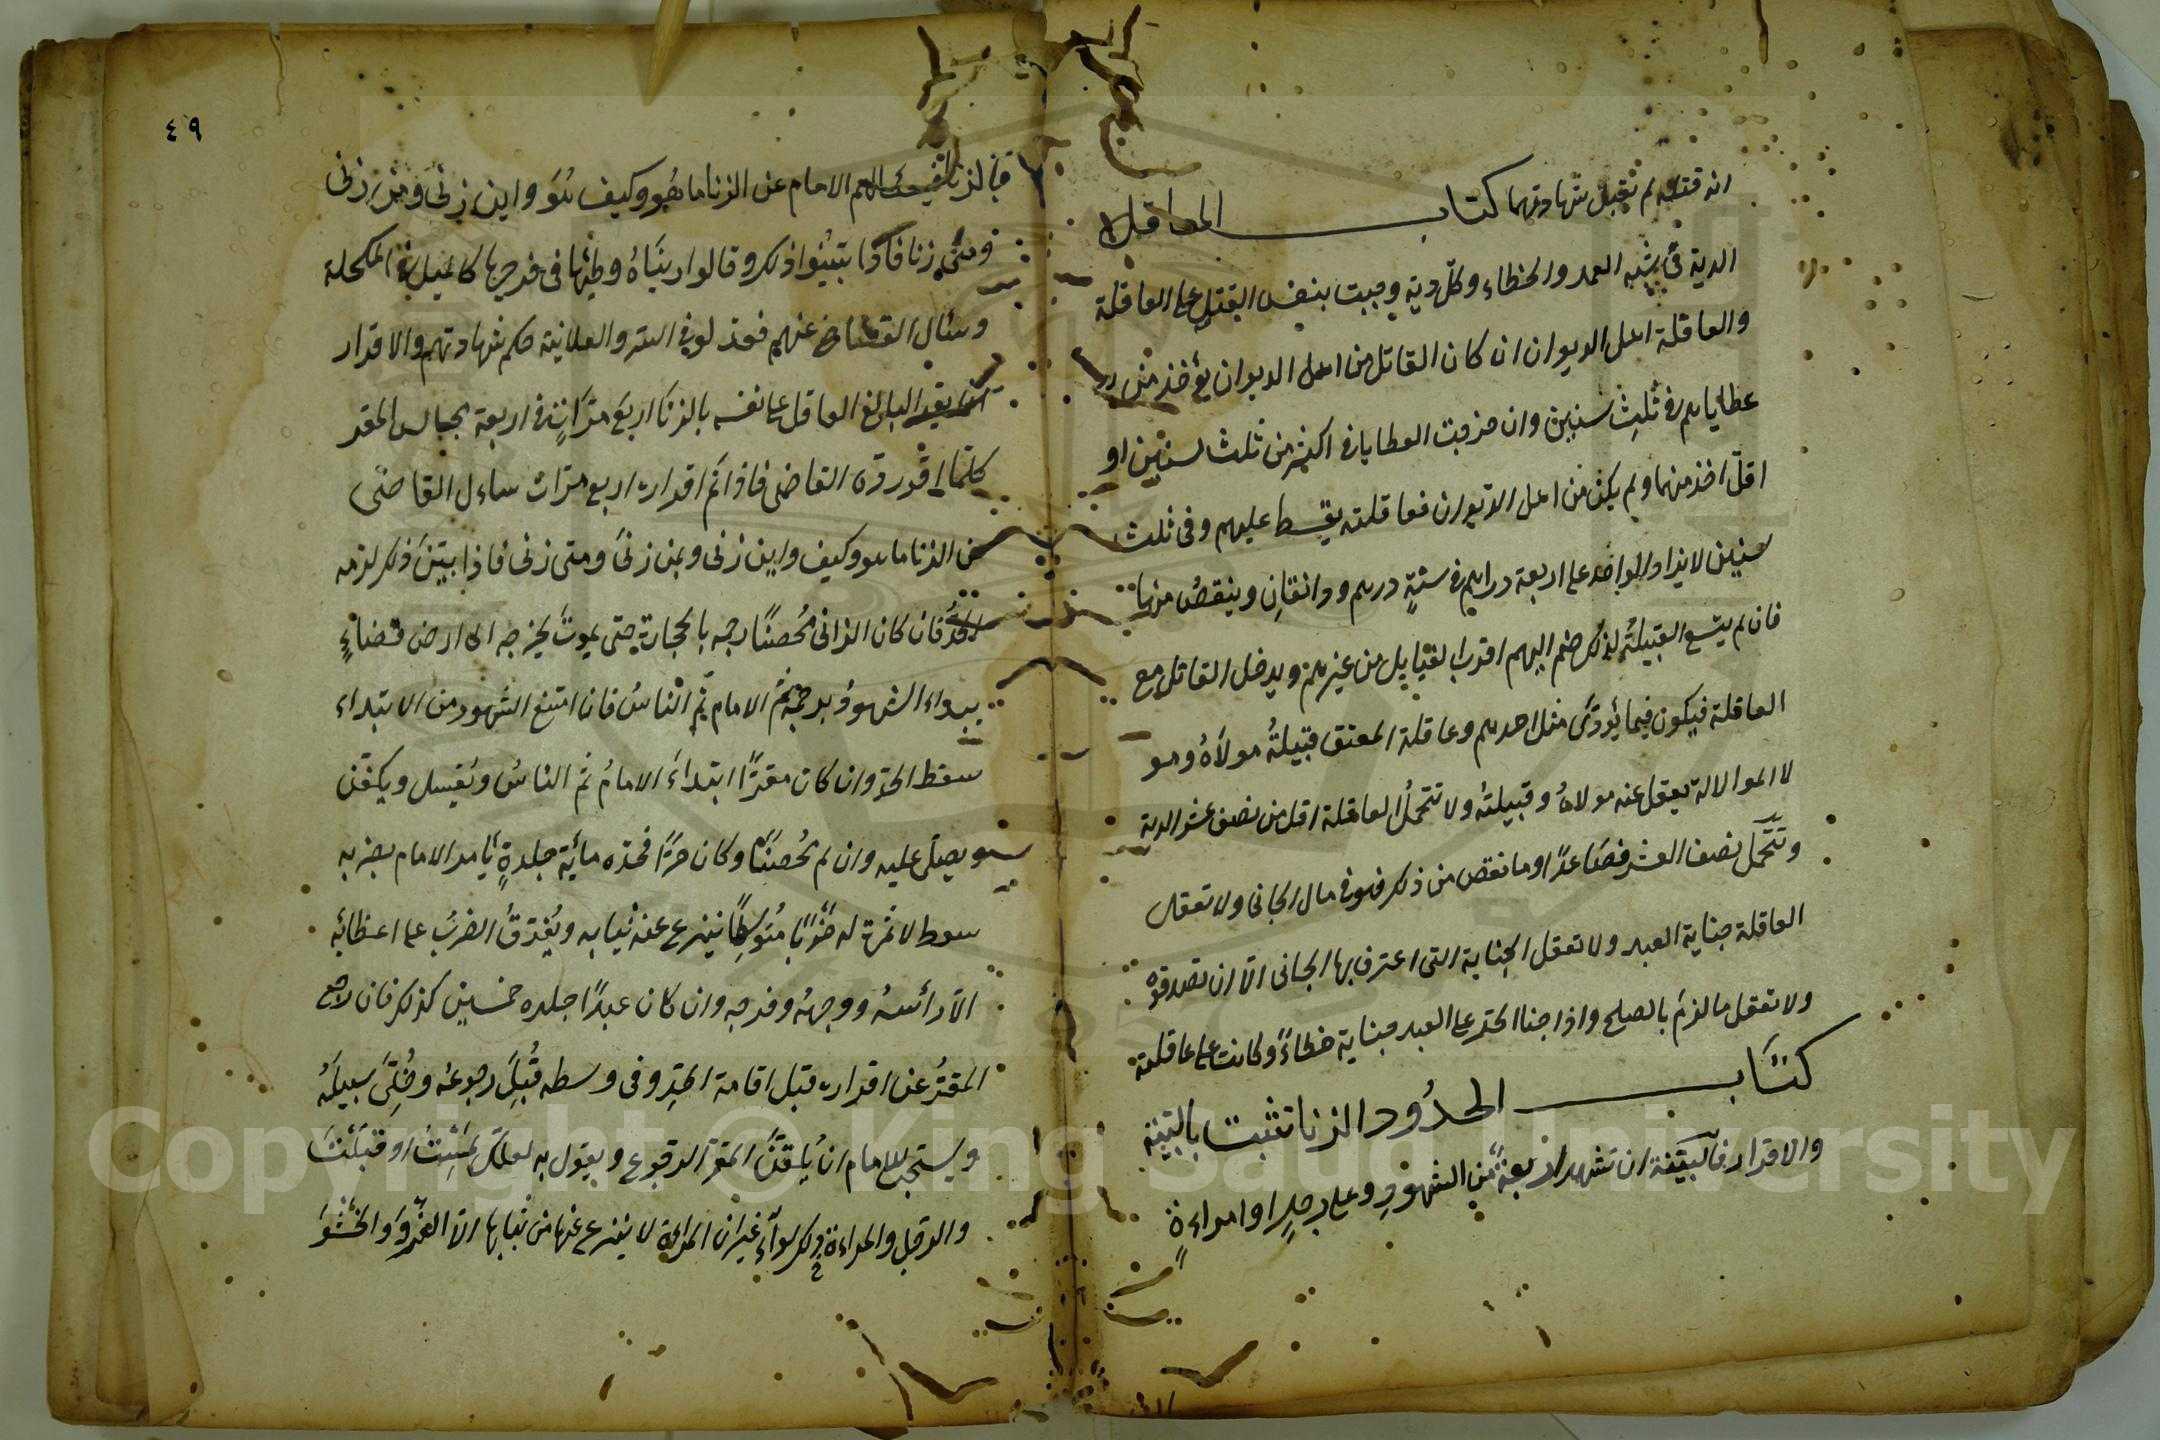 انه قتله لم تقبل شهادتهما كتاب المعاقل
الدية في شبه العمد والخطاء وكل دية وجبت بنفس القتل على العاقلة
والعاقلة اهل الديوان ان كان القاتل من اهل الديوان يؤخذ من
عطاياهم في ثلث سنين وان خرجت العطايا في اكثر من ثلث سنين او
اقل اخذ منها ولم يكن من اهل الديوان فعاقلته يقسط عليهم وفي ثلث
سنين لا يزاد الواحد على اربعة دراهم في سنة درهم ودانقان وينقص منها
فان لم يتسع القبيلة لذلك ضم اليهم اقرب القبايل من غيرهم ويدخل القاتل مع
العاقلة فيكون فيما يؤدى مثل احدهم وعاقلة المعتق قبيلة مولاه ومو
لا الموالاة يعقل عنه مولاه وقبيلته ولا تتحمل العاقلة اقل من نصف عشر الدية
وتتحمل نصف العشر فصاعدا وما نقص من ذلك فهو في مال الجاني ولا تعقل
العاقلة جناية العبد ولا تعقل الجناية التي اعترف بها الجاني الا ان تصدقوه
ولا تعقل ما لزم بالصلح واذا جنا الحر على العبد جناية خطاء وكانت على عاقلته
كتاب الحدود الزنا تثبت بالبينة
والاقرار فالبينة ان تشهد اربعة من الشهود وعلى رجل او امراءة
٤٩
بالزنا فيسئلهم الامام عن الزنا ما هو وكيف هو واين زنى وبمن زنى
ومتى زنا فاذا بينوا ذلك وقالوا رايناه وطئها في فرجها كالميل في المكحلة
وسئال القاضي عنهم فعدلو في السر والعلانية حكم بشهادتهم والاقرار
ان يقر البالغ العاقل على نفسه بالزنا اربع مرات في اربعة مجالس المقر
كلما اقر رده القاضي فاذا تم اقراره اربع مرات ساءل القاضي
عن الزنا ما هو وكيف واين زنى وبمن زنى ومتى زنى فاذا بين ذلك لزمه
الحد فان كان الزاني محصنا رجمه بالحجارة حتى يموت يخرجه الى ارض فضاء
يبداء الشهود برجمه ثم الامام ثم الناس فان امتنع الشهود من الابتداء
سقط الحد وان كان مقرا ابتداء الامام ثم الناس ويغسل ويكفن
ويصلى عليه وان لم محصنا وكان حرا فحده ماية جلدة يامر الامام بضربه
سوط لا ثمرة له ضربا متوسطا ينزع عنه ثيابه ويفرق الضرب على اعظائه
الا رائسه ووجهه وفرجه وان كان عبدا جلده خمسين كذلك فان رجع
المقر عن اقراره قبل اقامة الحد وفي وسطه قبل رجوعه وخلى سبيله
ويستحب للامام ان يلقن المقر الرجوع ويقول له لعلك لمست او قبلت
والرجل والمراءة في ذلك سواء غير ان المراة لا ينزع عنها من ثيابها الا الفرو والحشو